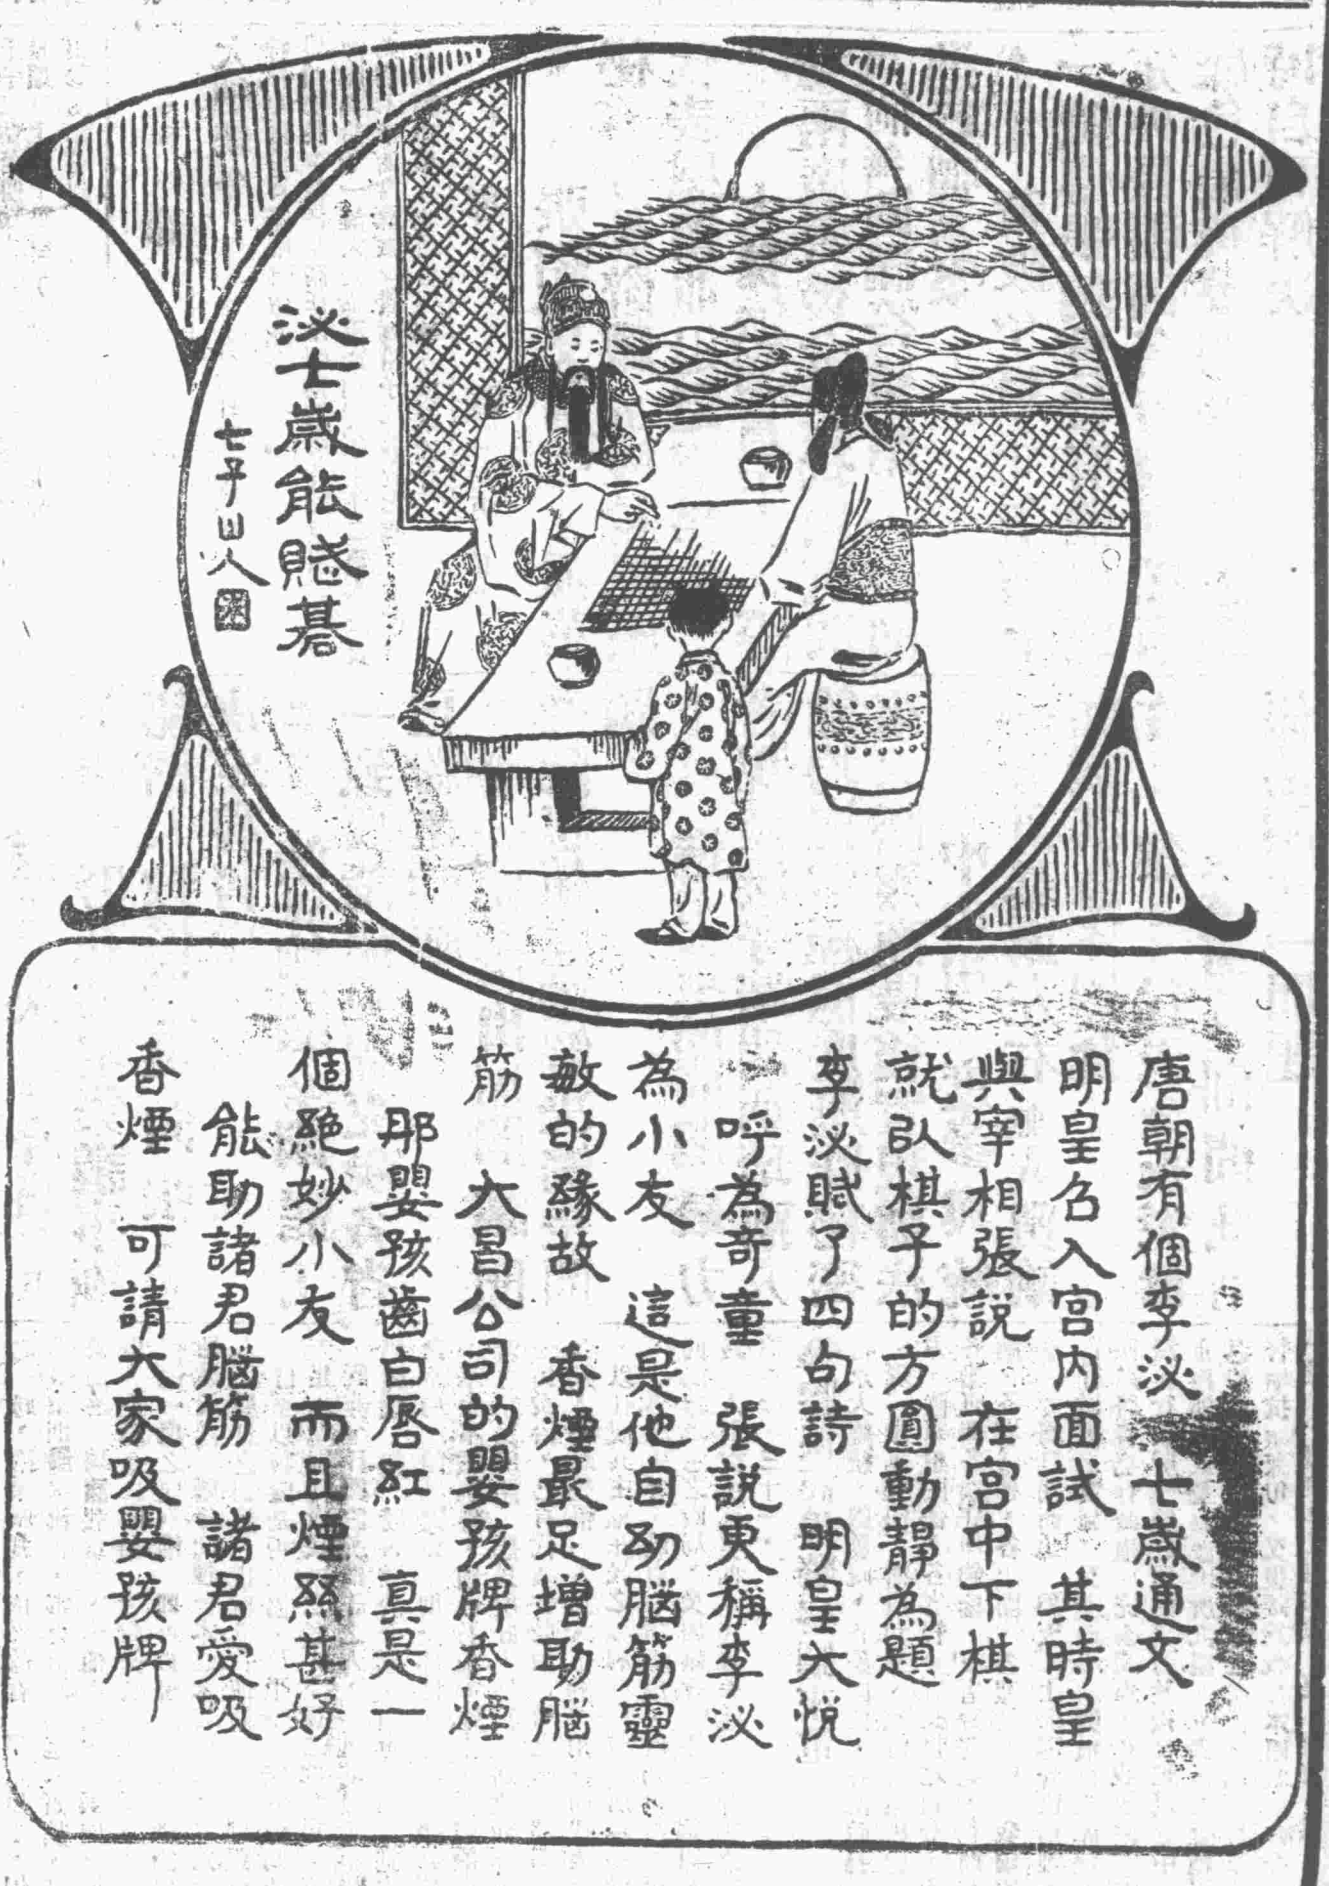 泌七歲能賦碁
七子山人
唐朝有個李泌 七歲通文
明皇召入宮內面試 其時皇
與宰相張説 在宮中下棋
就㠯棋子的方圓動靜為題
李泌賦了四句詩 明皇大悅
呼為奇童 張説更稱李泌
為小友 這是他自幼腦筋靈
敏的緣故 香煙最足增助腦
筋 大昌公司的嬰孩牌香煙
那嬰孩齒白唇紅 真是一
個絕妙小友 而且煙絲甚好
能助諸君腦筋 諸君愛吸
香煙 可請大家吸嬰孩牌